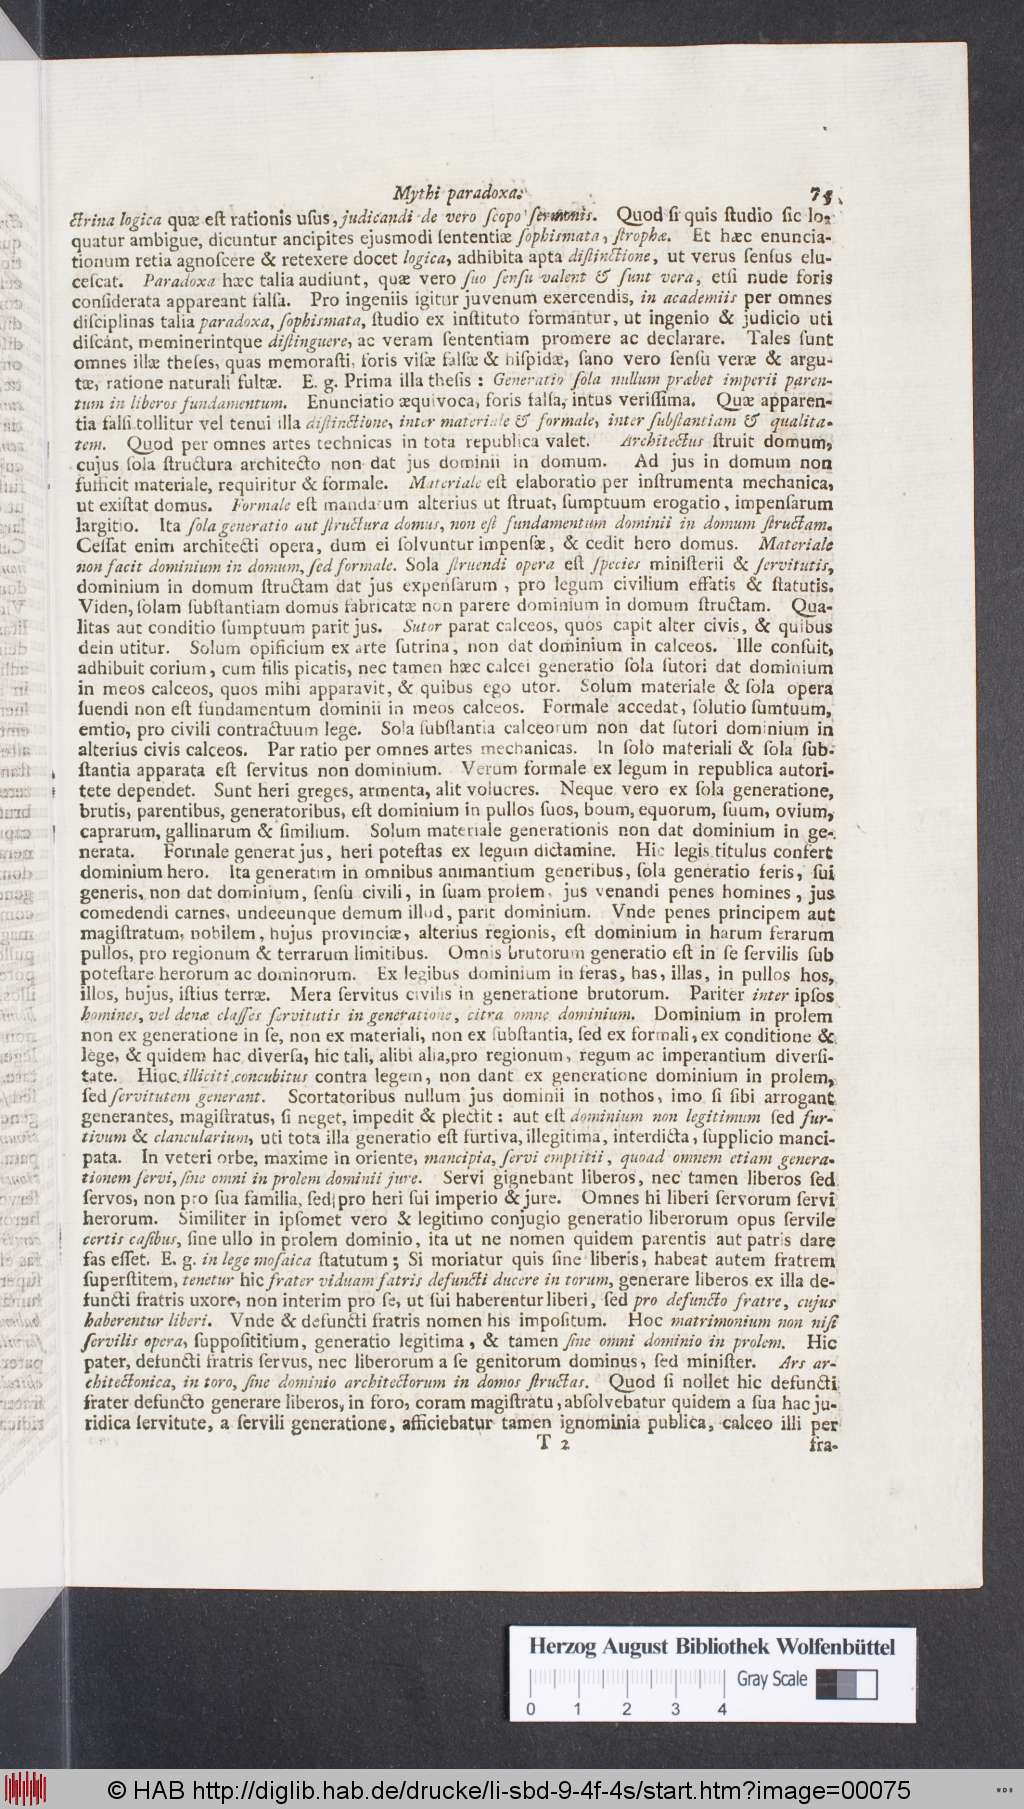 Mythi paradoxa. 75
ctrina logica quæ eſt rationis uſus, judicandi de vero ſcopo ſermonis. Quod ſi quis ſtudio ſic lo-
quatur ambigue, dicuntur ancipites ejusmodi ſententiæ ſophismata, ſtrophæ. Et hæc enuncia-
tionum retia agnoſcere & retexere docet logica, adhibita apta diſtinctione, ut verus ſenſus elu-
ceſcat. Paradoxa hæc talia audiunt, quæ vero ſuo ſenſu valent & ſunt vera, etſi nude foris
conſiderata appareant falſa. Pro ingeniis igitur juvenum exercendis, in academiis per omnes
diſciplinas talia paradoxa, ſophismata, ſtudio ex inſtituto formantur, ut ingenio & judicio uti
diſcant, meminerintque diſtinguere, ac veram ſententiam promere ac declarare. Tales ſunt
omnes illæ theſes, quas memoraſti, foris viſæ falſæ & hiſpidæ, ſano vero ſenſu veræ & argu-
tæ, ratione naturali fultæ. E. g. Prima illa theſis : Generatio ſola nullum præbet imperii paren-
tum in liberos fundamentum. Enunciatio æquivoca, foris falſa, intus veriſſima. Quæ apparen-
tia falſi tollitur vel tenui illa diſtinctione, inter materiale & formale, inter ſubſtantiam & qualita-
tem. Quod per omnes artes technicas in tota republica valet. Architectus ſtruit domum,
cujus ſola ſtructura architecto non dat jus dominii in domum. Ad jus in domum non
ſufficit materiale, requiritur & formale. Materiale eſt elaboratio per inſtrumenta mechanica,
ut exiſtat domus. Formale eſt mandatum alterius ut ſtruat, ſumptuum erogatio, impenſarum
largitio. Ita ſola generatio aut ſtructura domus, non eſt fundamentum dominii in domum ſtructam.
Ceſſat enim architecti opera, dum ei ſolvuntur impenſæ, & cedit hero domus. Materiale
non facit dominium in domum, ſed formale. Sola ſtruendi opera eſt ſpecies miniſterii & ſervitutis,
dominium in domum ſtructam dat jus expenſarum, pro legum civilium effatis & ſtatutis.
Viden, ſolam ſubſtantiam domus fabricatæ non parere dominium in domum ſtructam. Qua-
litas aut conditio ſumptuum parit jus. Sutor parat calceos, quos capit alter civis, & quibus
dein utitur. Solum opificium ex arte ſutrina, non dat dominium in calceos. Ille conſuit,
adhibuit corium, cum filis picatis, nec tamen hæc calcei generatio ſola ſutori dat dominium
in meos calceos, quos mihi apparavit, & quibus ego utor. Solum materiale & ſola opera
ſuendi non eſt fundamentum dominii in meos calceos. Formale accedat, ſolutio ſumtuum,
emtio, pro civili contractuum lege. Sola ſubſtantia calceorum non dat ſutori dominium in
alterius civis calceos. Par ratio per omnes artes mechanicas. In ſolo materiali & ſola ſub-
ſtantia apparata eſt ſervitus non dominium. Verum formale ex legum in republica autori-
tete dependet. Sunt heri greges, armenta, alit volucres. Neque vero ex ſola generatione,
brutis, parentibus, generatoribus, eſt dominium in pullos ſuos, boum, equorum, ſuum, ovium,
caprarum, gallinarum & ſimilium. Solum materiale generationis non dat dominium in ge-
nerata. Formale generat jus, heri poteſtas ex legum dictamine. Hic legis titulus confert
dominium hero. Ita generatim in omnibus animantium generibus, ſola generatio feris, ſui
generis, non dat dominium, ſenſu civili, in ſuam prolem, jus venandi penes homines, jus
comedendi carnes, undecunque demum illud, parit dominium. Vnde penes principem aut
magiſtratum, nobilem, hujus provinciæ, alterius regionis, eſt dominium in harum ferarum
pullos, pro regionum & terrarum limitibus. Omnis brutorum generatio eſt in ſe ſervilis ſub
poteſtare herorum ac dominorum. Ex legibus dominium in feras, has, illas, in pullos hos,
illos, hujus, iſtius terræ. Mera ſervitus civilis in generatione brutorum. Pariter inter ipſos
homines, vel denæ claſſes ſervitutis in generatione, citra omne dominium. Dominium in prolem
non ex generatione in ſe, non ex materiali, non ex ſubſtantia, ſed ex formali, ex conditione &
lege, & quidem hac diverſa, hic tali, alibi alia, pro regionum, regum ac imperantium diverſi-
tate. Hinc illiciti concubitus contra legem, non dant ex generatione dominium in prolem,
ſed ſervitutem generant. Scortatoribus nullum jus dominii in nothos, imo ſi ſibi arrogant
generantes, magiſtratus, ſi neget, impedit & plectit : aut eſt dominium non legitimum ſed fur-
tivum & clancularium, uti tota illa generatio eſt furtiva, illegitima, interdicta, ſupplicio manci-
pata. In veteri orbe, maxime in oriente, mancipia, ſervi emptitii, quoad omnem etiam genera-
tionem ſervi, ſine omni in prolem dominii jure. Servi gignebant liberos, nec tamen liberos ſed
ſervos, non pro ſua familia, ſed pro heri ſui imperio & jure. Omnes hi liberi ſervorum ſervi
herorum. Similiter in ipſomet vero & legitimo conjugio generatio liberorum opus ſervile
certis caſibus, ſine ullo in prolem dominio, ita ut ne nomen quidem parentis aut patris dare
fas eſſet. E. g. in lege moſaica ſtatutum ; Si moriatur quis ſine liberis, habeat autem fratrem
ſuperſtitem, tenetur hic frater viduam fatris defuncti ducere in torum, generare liberos ex illa de-
functi fratris uxore, non interim pro ſe, ut ſui haberentur liberi, ſed pro defuncto fratre, cujus
haberentur liberi. Vnde & defuncti fratris nomen his impoſitum. Hoc matrimonium non niſi
ſervilis opera, ſuppoſititium, generatio legitima, & tamen ſine omni dominio in prolem. Hic
pater, defuncti fratris ſervus, nec liberorum a ſe genitorum dominus, ſed miniſter. Ars ar-
chitectonica, in toro, ſine dominio architectorum in domos ſtructas. Quod ſi nollet hic defuncti
frater defuncto generare liberos, in foro, coram magiſtratu, abſolvebatur quidem a ſua hac ju-
ridica ſervitute, a ſervili generatione, afficiebatur tamen ignominia publica, calceo illi per
T 2 fra-
Herzog August Bibliothek Wolfenbüttel
Gray Scale
0 1 2 3 4
© HAB http://diglib.hab.de/drucke/li-sbd-9-4f-4s/start.htm?image=00075